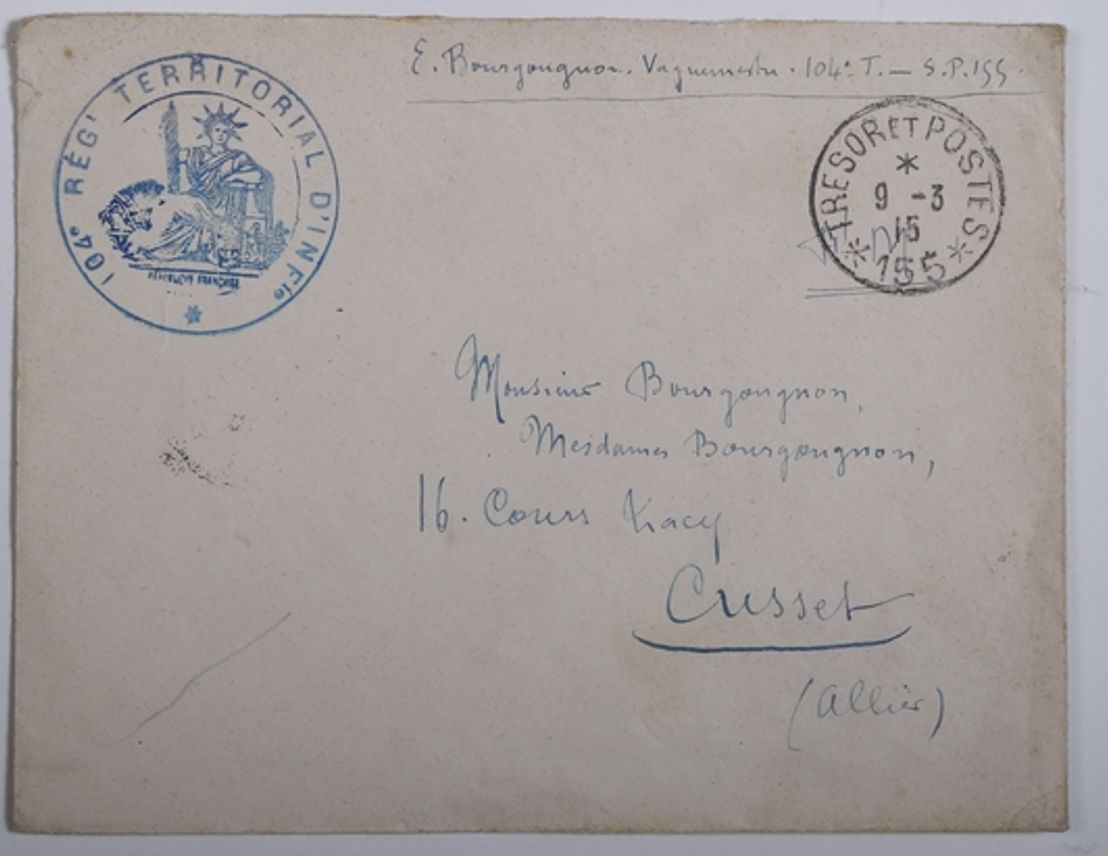 E. Bourgougnon. Vaguemestre. 104e T. — S.P. 155.
104e RÉGt TERRITORIAL D'INFie
RÉPUBLIQUE FRANÇAISE
TRESOR ET POSTES
9 -3
15
155
F. M.
Monsieur Bourgougnon,
Mesdames Bourgougnon,
16. Cours Lacy
Cusset
(Allier)